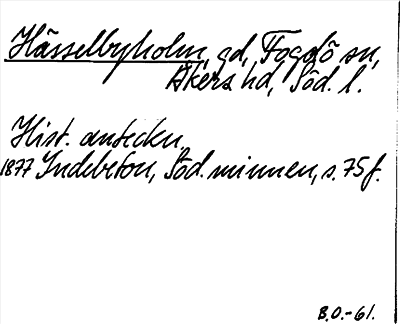 Hässelbyholm, gd, Fogdö sn,
Åkers hd, Söd. l.
Hist. anteckn.
1877 Indebetou, Söd. minnen, s. 75 f.
B.O.-61.